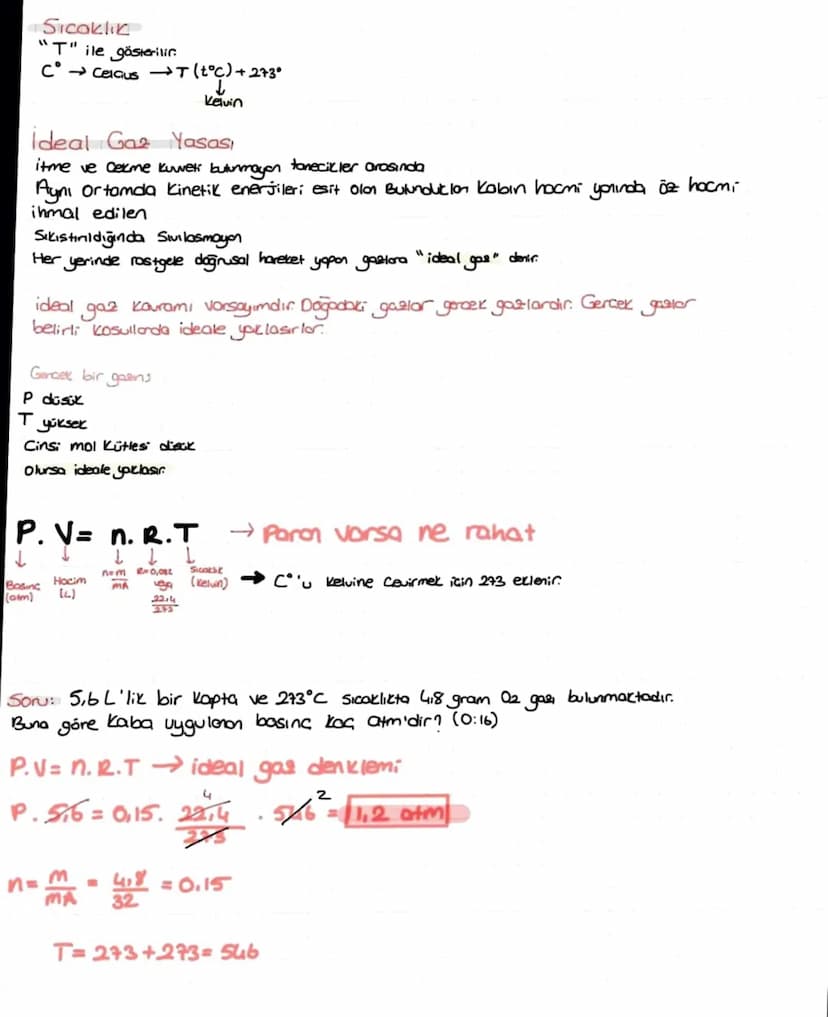 Sıcaklık
"T" ile gösterilir.
C° → Celcius → T (t°C) + 273°
↓
Kelvin
İdeal Gaz Yasası
İtme ve Çekme kuvveti bulunmayan tanecikler arasında
Aynı Ortamda Kinetik enerjileri eşit olan Bulundukları Kabın hacmi yanında öz hacmi
ihmal edilen
Sıkıştırıldığında Sıvılaşmayan
Her yerinde rastgele doğrusal hareket yapan gazlara "ideal gaz" denir.
ideal gaz kavramı varsayımdır. Doğadaki gazlar gerçek gazlardır. Gerçek gazlar
belirli koşullarda ideale yaklaşırlar.
Gerçek bir gazın;
P düşük
T yüksek
Cinsi mol kütlesi düşük
Olursa ideale yaklaşır.
P. V = n. R. T → Paran varsa ne rahat
↓ ↓ ↓ ↓ ↓
Basınç (atm) Hacim (L) n=m/mA R=0,082 veya 22,4/273 Sıcaklık (Kelvin) → C°'u kelvine çevirmek için 273 eklenir.
Soru: 5,6 L'lik bir kapta ve 273°C sıcaklıkta 4,8 gram O2 gazı bulunmaktadır.
Buna göre kaba uygulanan basınç kaç atm'dir? (O:16)
P.V = n.R.T → ideal gaz denklemi
P. 5,6 = 0,15. 22,4/273 4 . 546 2 = 1,2 atm
n = m/mA = 4,8/32 = 0.15
T = 273 + 273 = 546